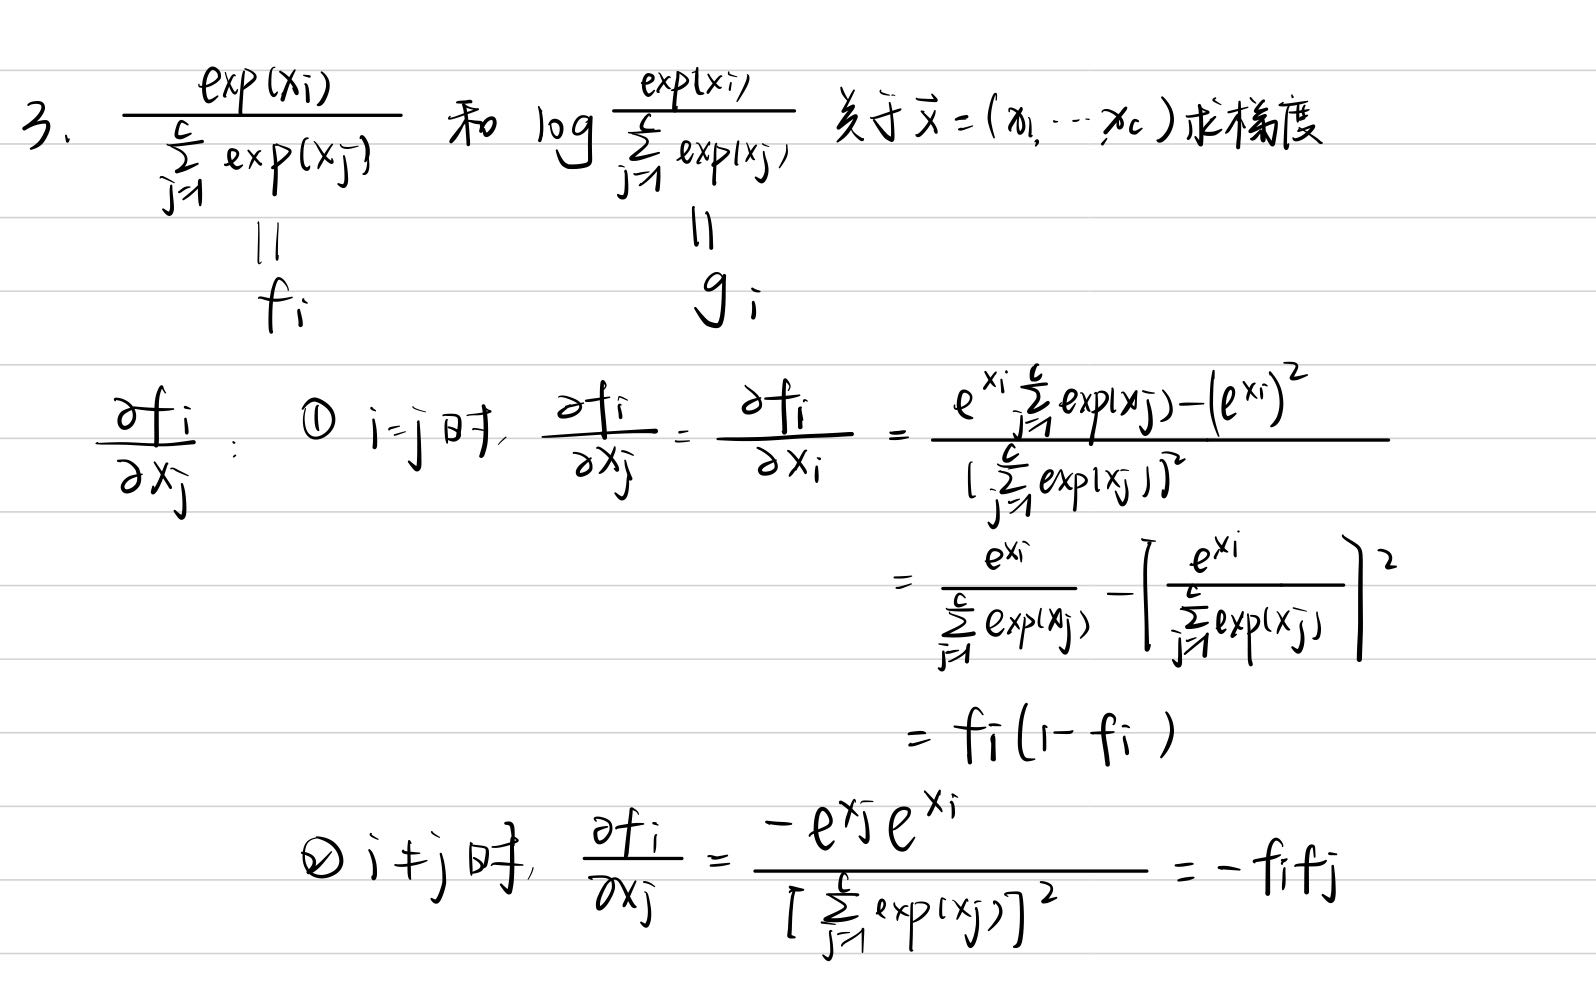 3. \frac{exp(x_i)}{\sum_{j=1}^{c} exp(x_j)} 和 log \frac{exp(x_i)}{\sum_{j=1}^{c} exp(x_j)} 关于 \vec{x} = (x_1, ⋯ x_c) 求梯度
|| ||
f_i g_i
\frac{∂f_i}{∂x_j} : ① i=j 时, \frac{∂f_i}{∂x_j} = \frac{∂f_i}{∂x_i} = \frac{e^{x_i} \sum_{j=1}^{c} exp(x_j) - (e^{x_i})^2}{[\sum_{j=1}^{c} exp(x_j)]^2}
= \frac{e^{x_i}}{\sum_{j=1}^{c} exp(x_j)} - [\frac{e^{x_i}}{\sum_{j=1}^{c} exp(x_j)}]^2
= f_i(1 - f_i)
② i ≠ j 时, \frac{∂f_i}{∂x_j} = \frac{-e^{x_j} e^{x_i}}{[\sum_{j=1}^{c} exp(x_j)]^2} = -f_i f_j